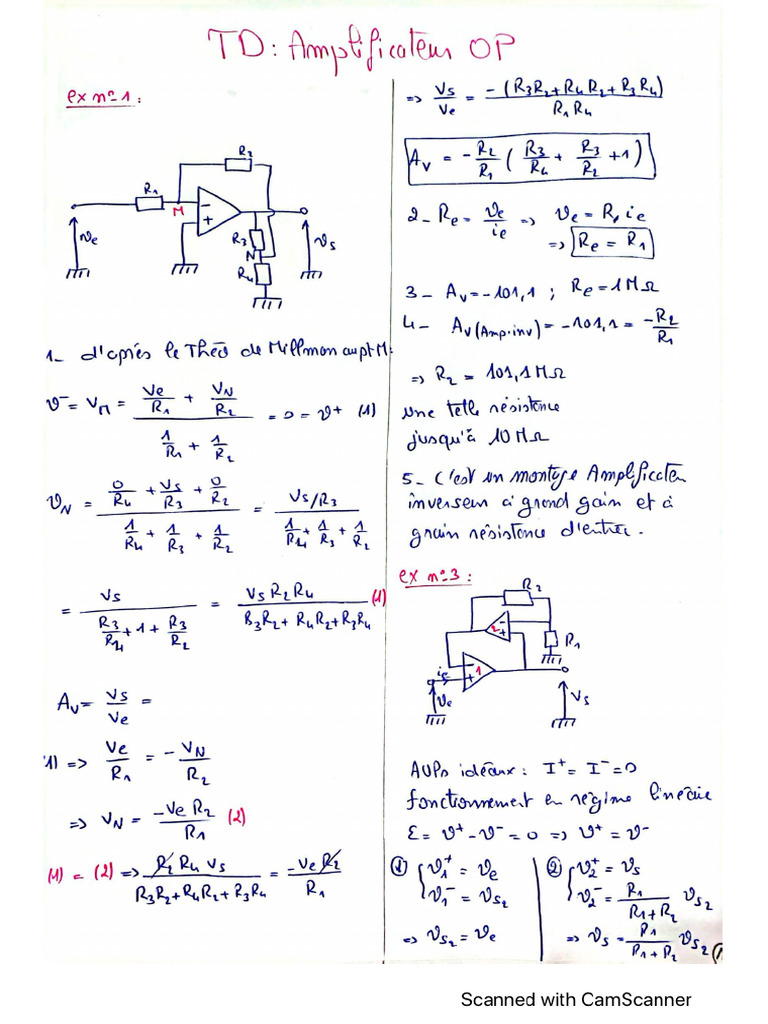 TD: Amplificateur OP
ex n°1:
R2
R1
M
-
+
ve
R3
N
R4
vs
1- d'après le Théo de Millmon au pt M:
v⁻ = VM = (Ve/R1 + VN/R2) / (1/R1 + 1/R2) = 0 = v⁺ (1)
vN = (0/R4 + Vs/R3 + 0/R2) / (1/R4 + 1/R3 + 1/R2) = (Vs/R3) / (1/R4 + 1/R3 + 1/R2)
= Vs / (R3/R4 + 1 + R3/R2) = Vs R2 R4 / (R3R2 + R4R2 + R3R4) (1)
Av = Vs/Ve =
1) => Ve/R1 = - VN/R2
=> VN = -Ve R2 / R1 (2)
(1) = (2) => R2 R4 Vs / (R3R2 + R4R2 + R3R4) = -Ve R2 / R1
=> Vs/Ve = -(R3R2 + R4R2 + R3R4) / R1R4
Av = - R2/R1 ( R3/R4 + R3/R2 + 1 )
2- Re = ve/ie => ve = R1 ie
=> Re = R1
3- Av = -101,1 ; Re = 1MΩ
4- Av(Amp.inv) = -101,1 = -R2/R1
=> R2 = 101,1 MΩ
une telle résistance
jusqu'à 10 MΩ
5- c'est un montage Amplificateu
inverseur à grand gain et à
grain résistance d'entrée.
ex n°3:
R2
2
-
+
R1
ie
-
+
1
Ve
Vs
AOPs idéaux: I⁺ = I⁻ = 0
fonctionnement en régime linéaire
ε = v⁺ - v⁻ = 0 => v⁺ = v⁻
① { v1⁺ = ve
v1⁻ = vs2
=> vs2 = ve
② { v2⁺ = vs
v2⁻ = R1/(R1+R2) vs2
=> vs = R1/(R1+R2) vs2
Scanned with CamScanner